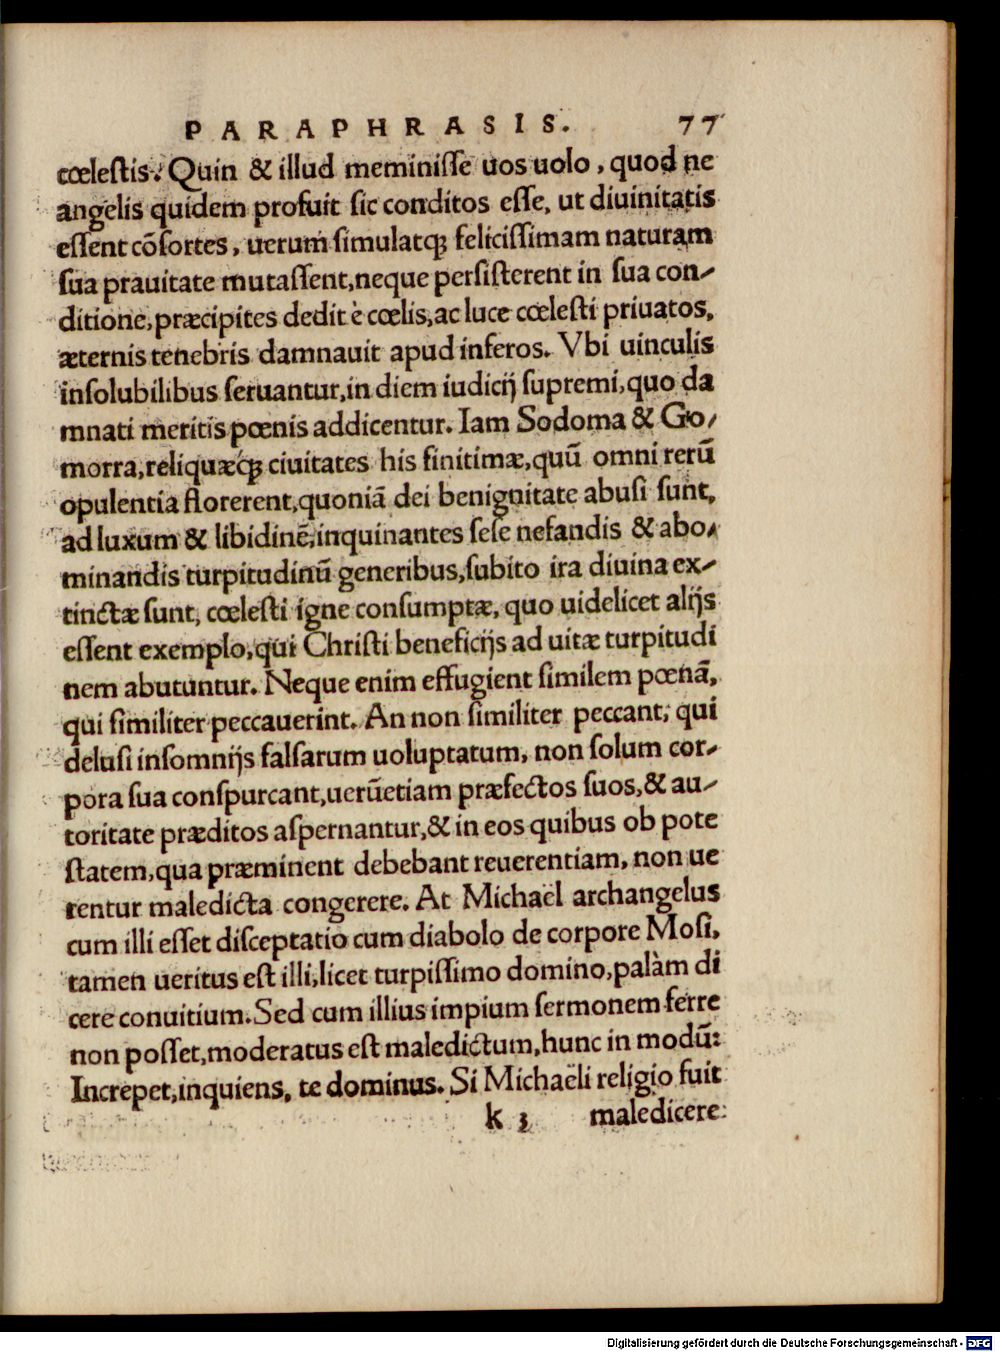 PARAPHRASIS. 77
cœlestis. Quin & illud meminisse uos uolo, quod ne
angelis quidem profuit sic conditos esse, ut diuinitatis
essent cõsortes, uerum simulatq; felicissimam naturam
sua prauitate mutassent, neque persisterent in sua con-
ditione, præcipites dedit è cœlis, ac luce cœlesti priuatos,
æternis tenebris damnauit apud inferos. Vbi uinculis
insolubilibus seruantur, in diem iudicij supremi, quo da
mnati meritis pœnis addicentur. Iam Sodoma & Go-
morra, reliquæq; ciuitates his finitimæ, quũ omni rerũ
opulentia florerent, quoniã dei benignitate abusi sunt,
ad luxum & libidinẽ, inquinantes sese nefandis & abo-
minandis turpitudinũ generibus, subito ira diuina ex-
tinctæ sunt, cœlesti igne consumptæ, quo uidelicet alijs
essent exemplo, qui Christi beneficijs ad uitæ turpitudi
nem abutuntur. Neque enim effugient similem pœnã,
qui similiter peccauerint. An non similiter peccant, qui
delusi insomnijs falsarum uoluptatum, non solum cor-
pora sua conspurcant, uerũetiam præfectos suos, & au-
toritate præditos aspernantur, & in eos quibus ob pote
statem, qua præminent debebant reuerentiam, non ue
rentur maledicta congerere. At Michaël archangelus
cum illi esset disceptatio cum diabolo de corpore Mosi,
tamen ueritus est illi, licet turpissimo domino, palàm di
cere conuitium. Sed cum illius impium sermonem ferre
non posset, moderatus est maledictum, hunc in modũ:
Increpet, inquiens, te dominus. Si Michaëli religio fuit
k 3 maledicere
Digitalisierung gefördert durch die Deutsche Forschungsgemeinschaft - DFG